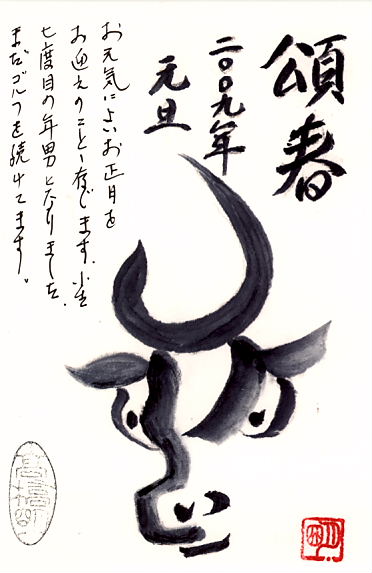 頌春
二〇〇九年
元旦
お元気によいお正月を
お迎えのことゝ存じます。小生
七度目の年男となりました。
まだゴルフを続けてます。